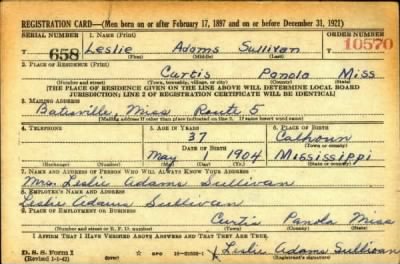 REGISTRATION CARD—(Men born on or after February 17, 1897 and on or before December 31, 1921)
SERIAL NUMBER 1. NAME (Print) ORDER NUMBER
T 658 Leslie Adams Sullivan 10570
(First) (Middle) (Last)
2. PLACE OF RESIDENCE (Print)
Curtis Panola Miss
(Number and street) (Town, township, village, or city) (County) (State)
[THE PLACE OF RESIDENCE GIVEN ON THE LINE ABOVE WILL DETERMINE LOCAL BOARD
JURISDICTION; LINE 2 OF REGISTRATION CERTIFICATE WILL BE IDENTICAL]
3. MAILING ADDRESS
Batesville Miss Route 5
[Mailing address if other than place indicated on line 2. If same insert word same]
4. TELEPHONE 5. AGE IN YEARS 6. PLACE OF BIRTH
37 Calhoun
DATE OF BIRTH (Town or county)
May 1904 Mississippi
(Exchange) (Number) (Mo.) (Day) (Yr.) (State or country)
7. NAME AND ADDRESS OF PERSON WHO WILL ALWAYS KNOW YOUR ADDRESS
Mrs. Leslie Adams Sullivan
8. EMPLOYER'S NAME AND ADDRESS
Leslie Adams Sullivan
9. PLACE OF EMPLOYMENT OR BUSINESS
Curtis Panola Miss
(Number and street or R. F. D. number) (Town) (County) (State)
I AFFIRM THAT I HAVE VERIFIED ABOVE ANSWERS AND THAT THEY ARE TRUE.
D. S. S. Form 1 GPO
(Revised 1-1-42) Leslie Adams Sullivan
(Registrant's signature)